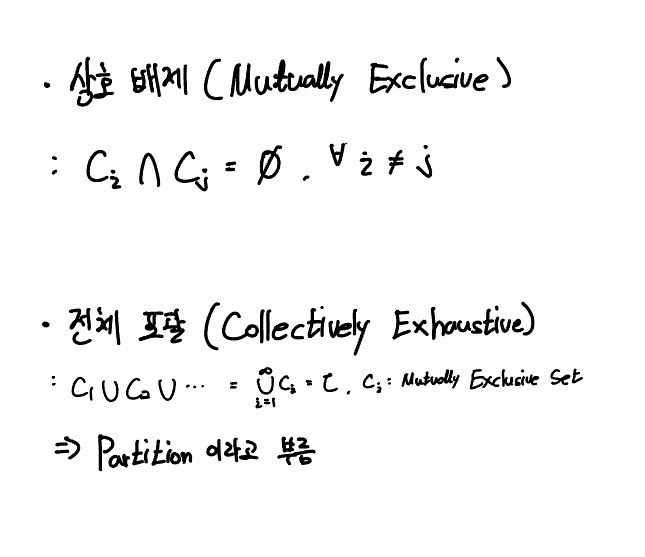 · 상호 배제 (Mutually Exclusive)
: C_i ∩ C_j = ∅. ∀ i ≠ j
· 전체 포괄 (Collectively Exhaustive)
: C_1 ∪ C_2 ∪ ⋯ = ⋃_{i=1}^{∞} C_i = C. C_i : Mutually Exclusive Set
⇒ Partition 이라고 부름